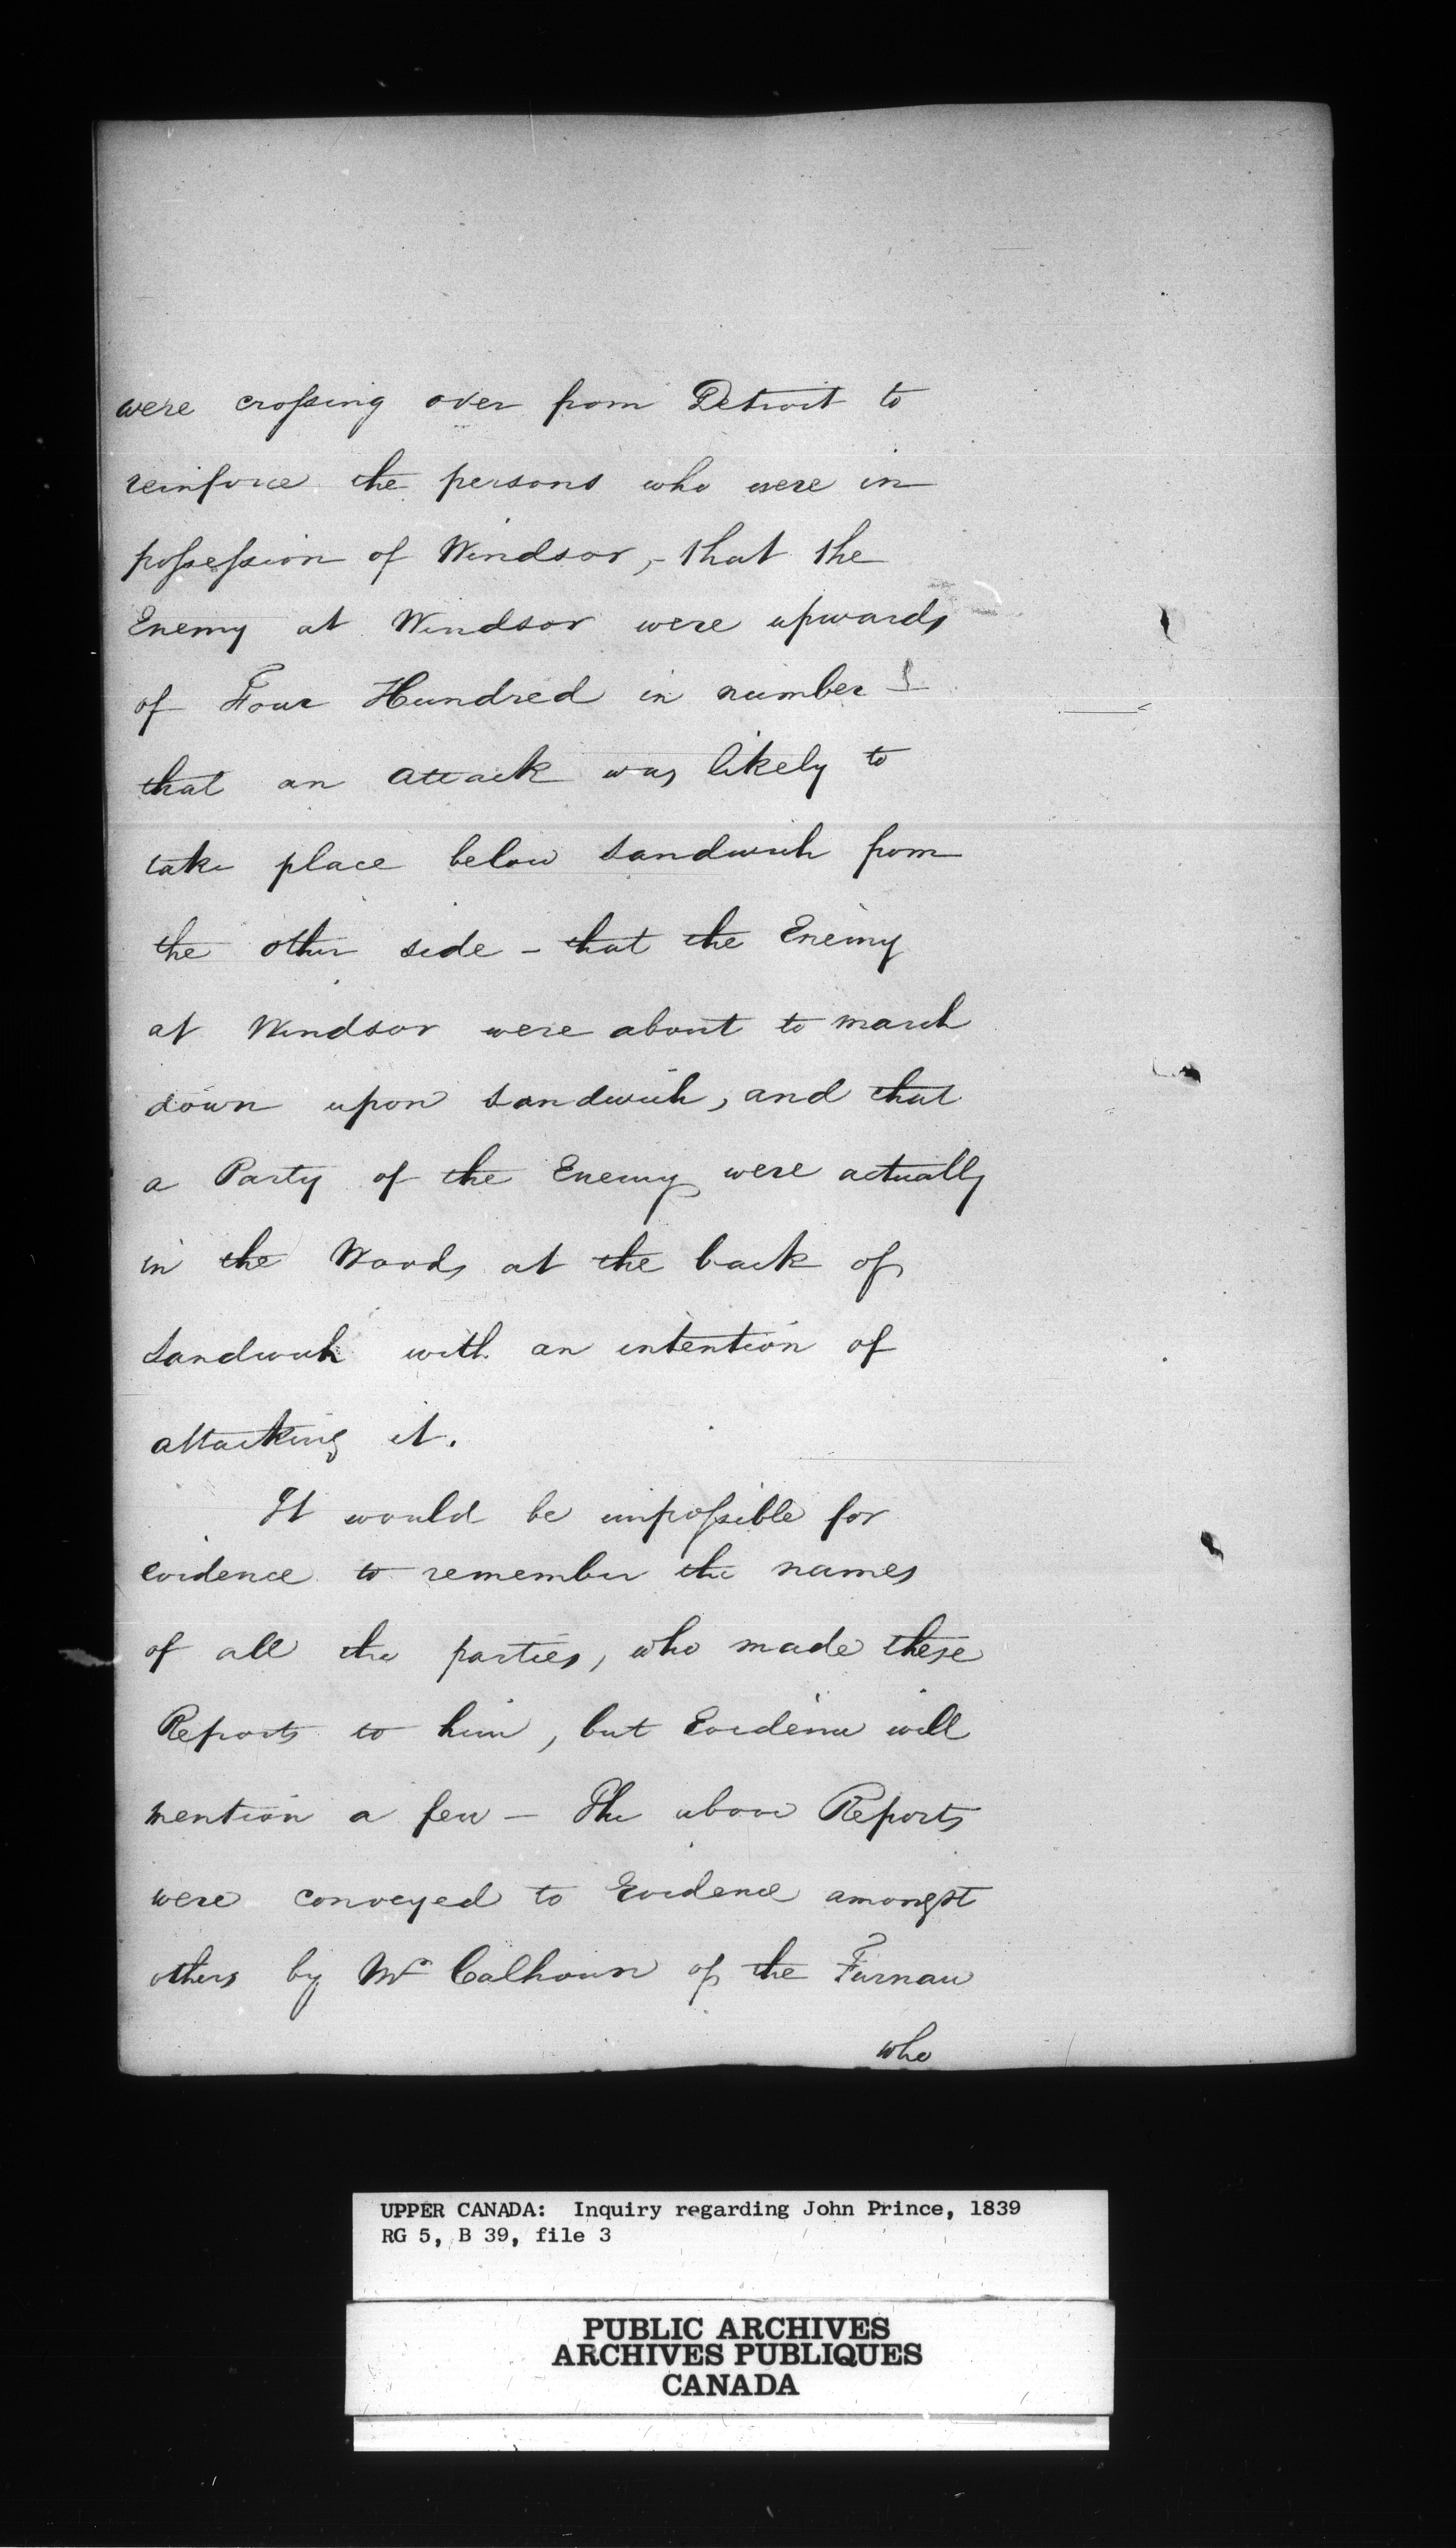 were crossing over from Detroit to
reinforce the persons who were in
possession of Windsor, - that the
Enemy at Windsor were upwards
of Four Hundred in number
that an attack was likely to
take place below Sandwich from
the other side - that the Enemy
at Windsor were about to march
down upon Sandwich, and that
a Party of the Enemy were actually
in the Woods at the back of
Sandwich with an intention of
attacking it.
It would be impossible for
evidence to remember the names
of all the parties, who made these
Reports to him, but Evidence will
mention a few - The above Reports
were conveyed to Evidence amongst
others by Mr Calhoun of the Furnace
who
UPPER CANADA: Inquiry regarding John Prince, 1839
RG 5, B 39, file 3
PUBLIC ARCHIVES
ARCHIVES PUBLIQUES
CANADA